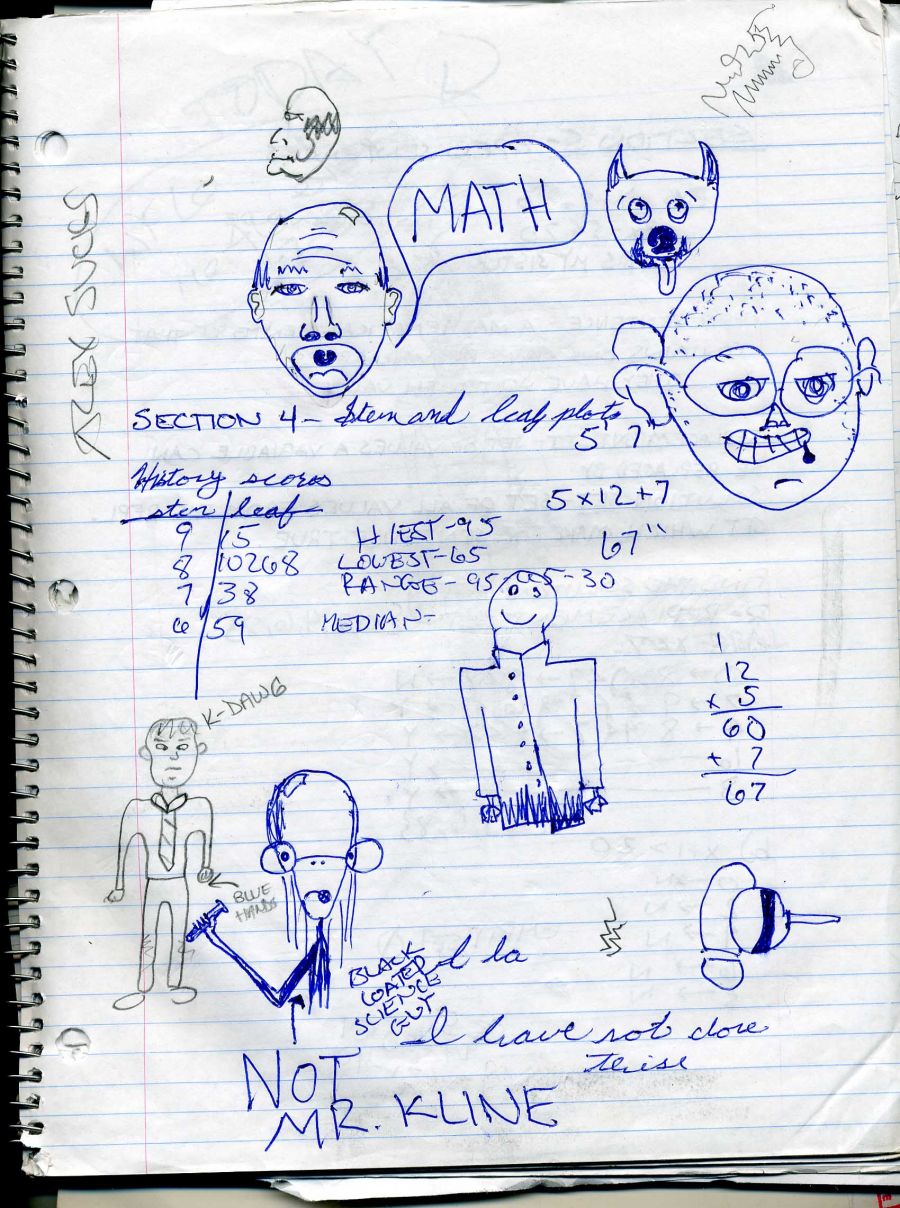 MATH
ALEX SUCKS
SECTION 4 - Stem and leaf plots
5' 7"
History scores
stem leaf
5 x 12 + 7
9 15 HIEST - 95
67"
8 10268 LOWEST - 65
7 38 RANGE - 95 - 65 - 30
6 59 MEDIAN -
K-DAWG
1
12
x 5
60
+ 7
67
BLUE
HANDS
I la
BLACK
COATED
SCIENCE
GUY
I have not done
NOT
MR. KLINE